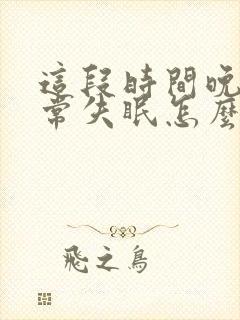 這段時間晚
常失眠怎麼
飛之鳥